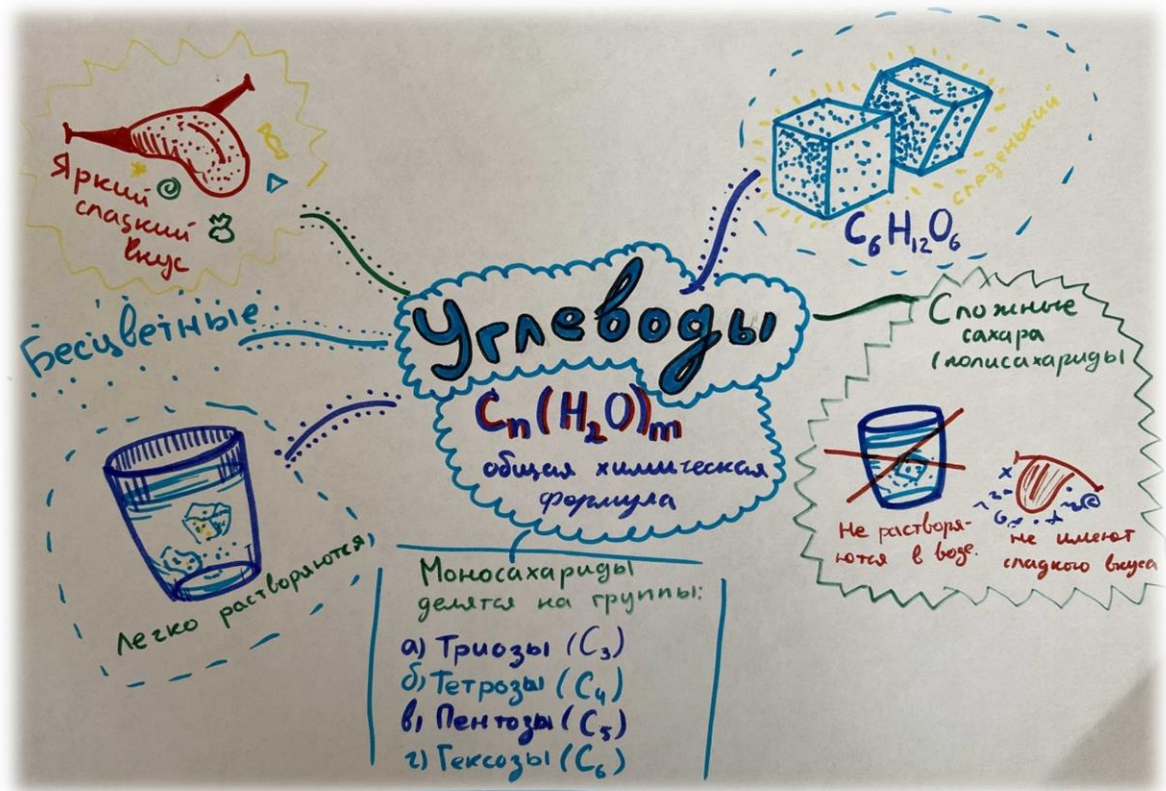 Яркий
сладкий
вкус
Бесцветные
легко растворяются
Углеводы
Cₙ(H₂O)ₘ
общая химическая
формула
сладенький
C₆H₁₂O₆
Сложные
сахара
(полисахариды
Не растворя-
ются в воде.
не имеют
сладкого вкуса
Моносахариды
делятся на группы:
а) Триозы (C₃)
б) Тетрозы (C₄)
в) Пентозы (C₅)
г) Гексозы (C₆)